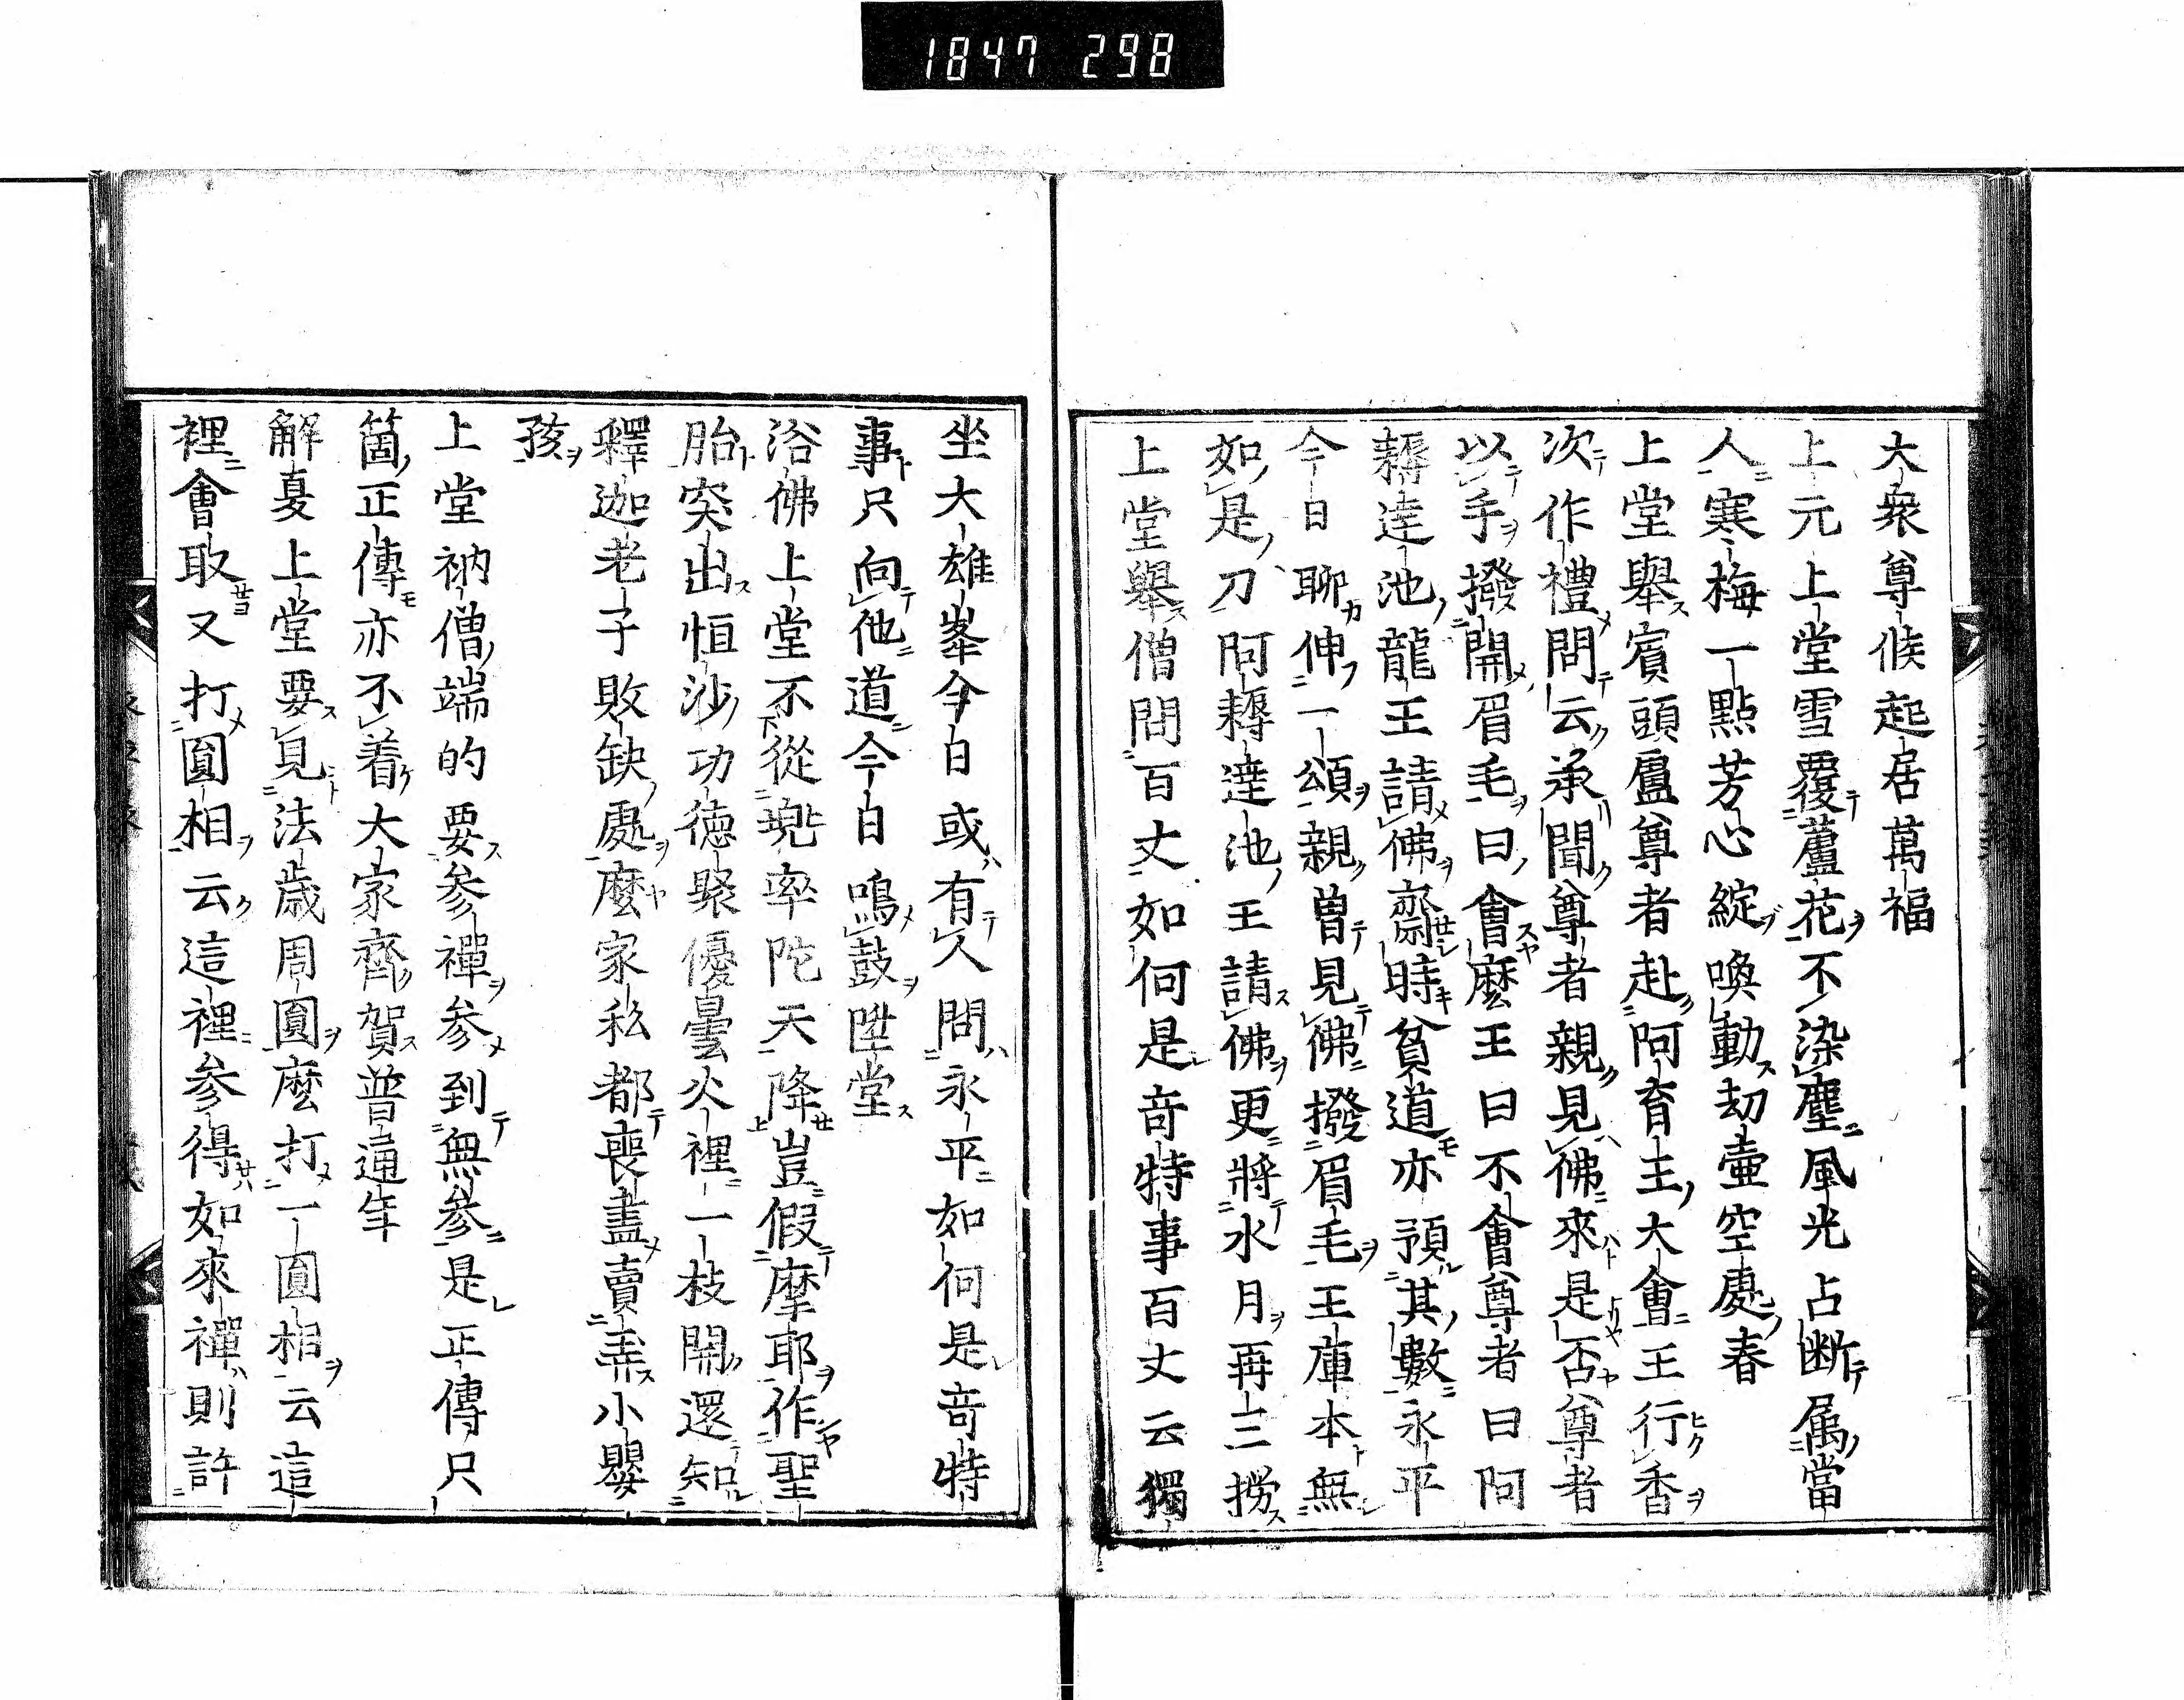 1847 298
大衆尊候起居萬福
上元上堂雪覆蘆花不染塵風光占断属當
人寒梅一點芳心綻喚動劫壷空處春
上堂舉賓頭盧尊者赴阿育王大會王行香
次作禮問云承聞尊者親見佛來是否尊者
以手撥開眉毛曰會麼王曰不會尊者曰阿
耨達池龍王請佛齋時貧道亦預其數永平
今日聊伸一頌親曽見佛撥眉毛王庫本無
如是刀阿耨達池王請佛更將水月再三撈
上堂舉僧問百丈如何是竒特事百丈云獨
坐大雄峯今日或有人問永平如何是竒特
事只向他道今日鳴鼓陞堂
浴佛上堂不從兜率陀天降豈假摩耶作聖
胎突出恒沙功德聚優曇火裡一枝開還知
釋迦老子敗缺處麼家私都喪盡賣弄小嬰
孩
上堂衲僧端的要参禪参到無参是正傳只
箇正傳亦不着大家齊賀普通年
解夏上堂要見法歳周圓麼打一圓相云這
裡會取又打圓相云這裡参得如來禪則許